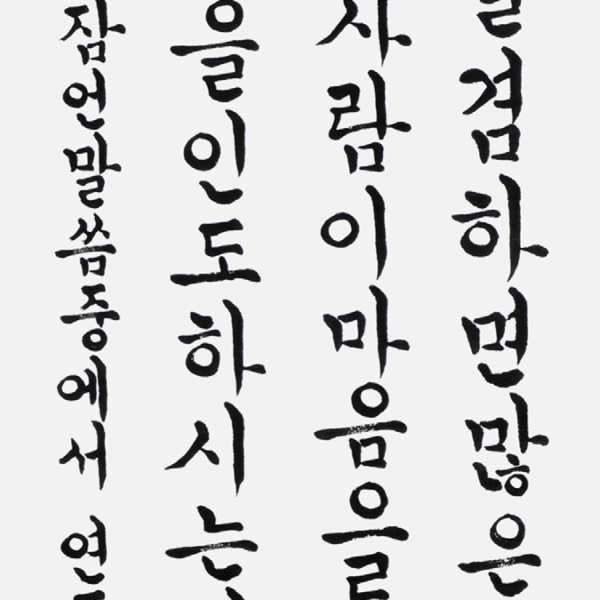 겸하면많은
사람이마음을
을인도하시는
잠언말씀중에서 연